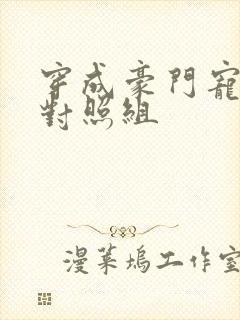 穿成豪門寵
對照組
漫菓塢工作室